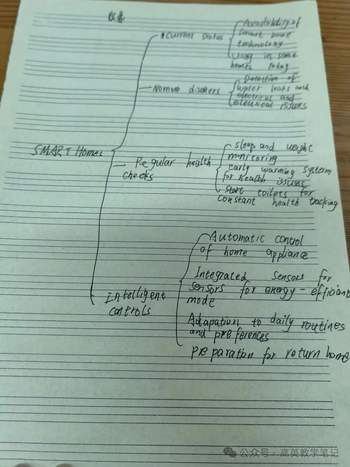 Current status
Availability of
smart home
technology
used in some
homes today
Detection of
water leaks and
electrical and
SMART Homes
Regular health
checks
sleep and weight
monitoring
early warning system
for health issues
Start toilets for
constant health tracking
Intelligent
controls
Automatic control
of home appliance
Integrated sensors for
sensors for energy-efficient
mode
Adapation to daily routines
and preferences
preparation for return home
公众号·高英教学笔记